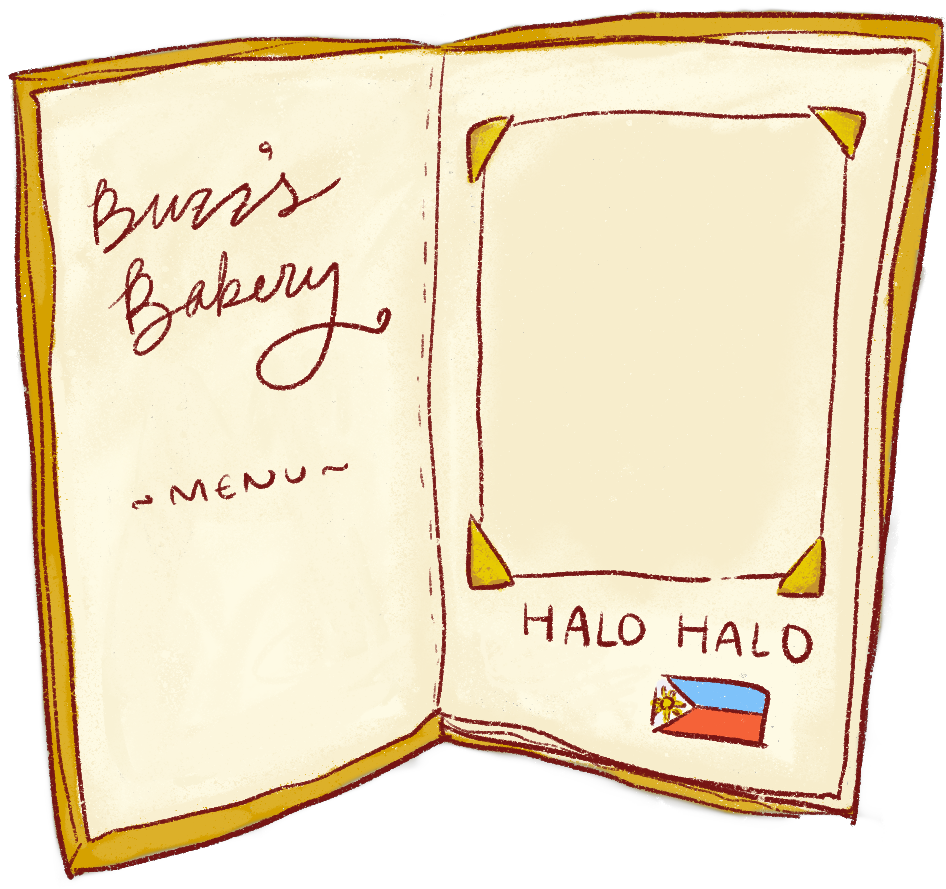 Buzz's
Bakery
~MENU~
HALO HALO